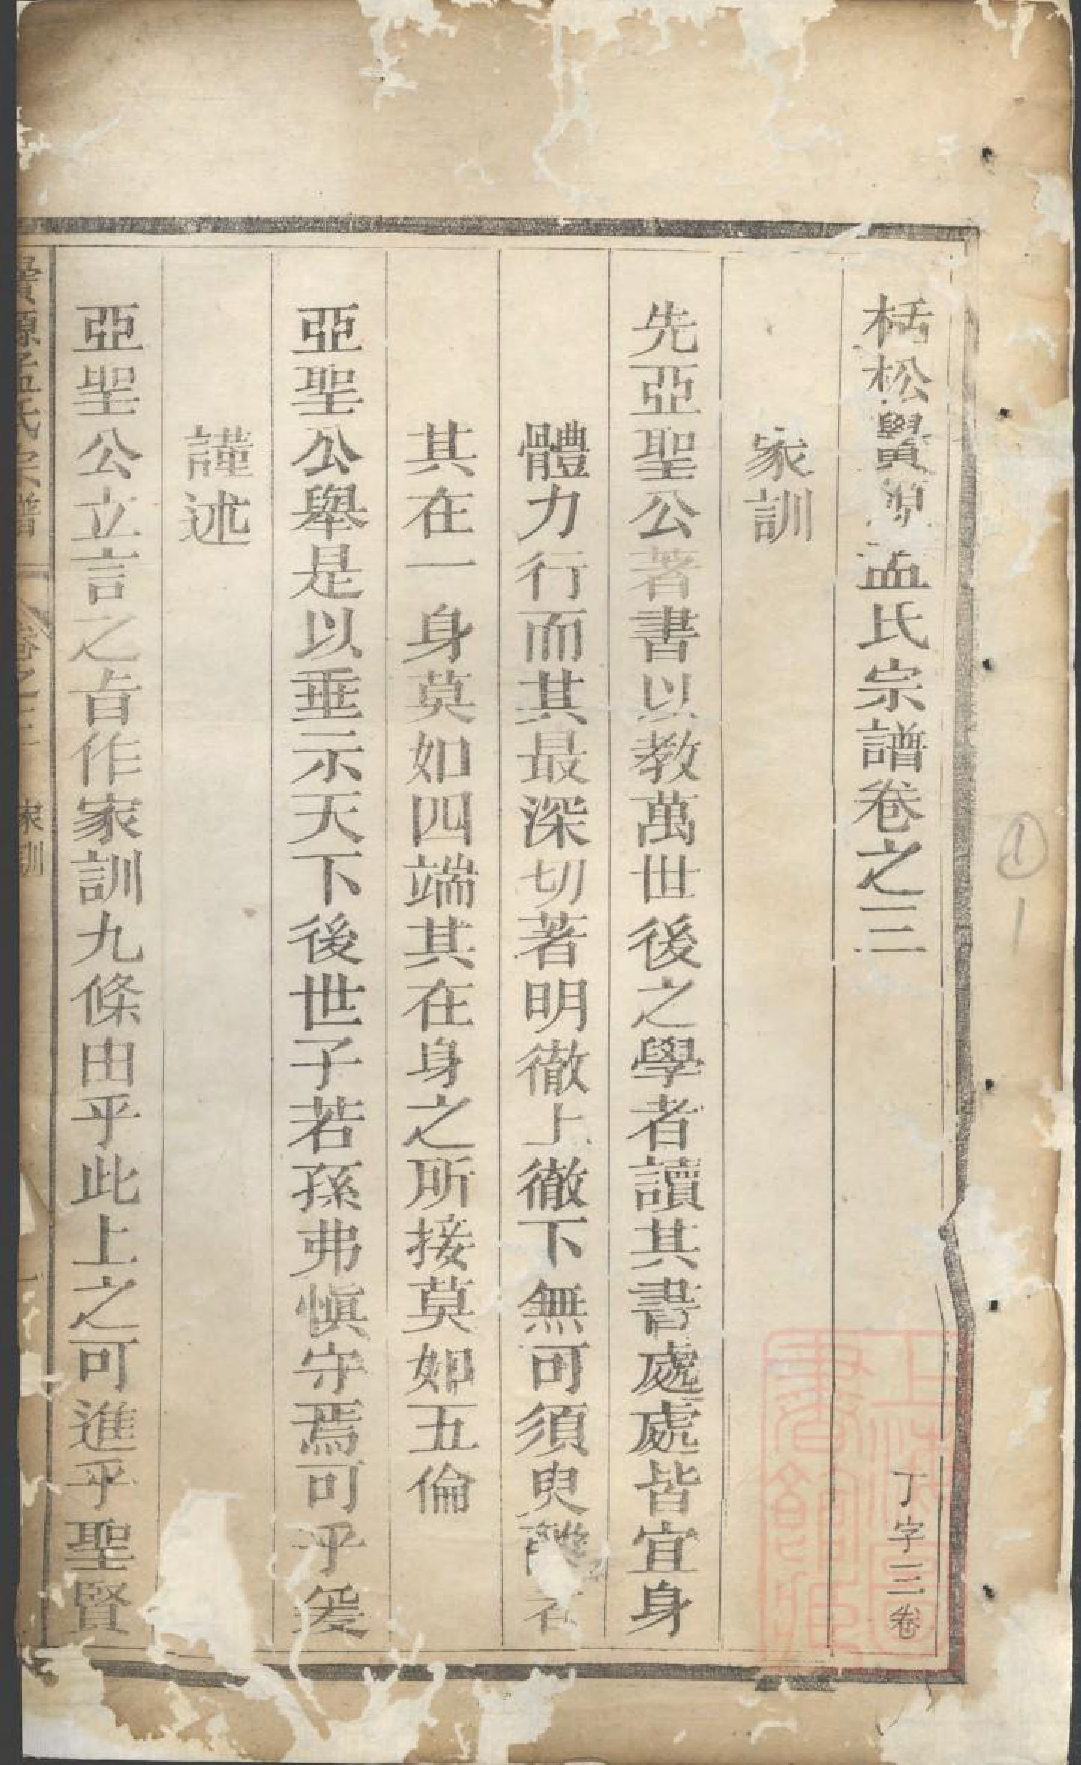 栝松貝源孟氏宗譜卷之三
丁字三卷
家訓
先亞聖公著書以教萬世後之學者讀其書處處皆宜身
體力行而其最深切著明徹上徹下無可須臾離者
其在一身莫如四端其在身之所接莫如五倫
亞聖公舉是以垂示天下後世子若孫弗慎守焉可乎爰
謹述
亞聖公立言之旨作家訓九條由乎此上之可進乎聖賢
源孟氏宗譜
卷之三
家訓
一
上海圖書館藏
①
1